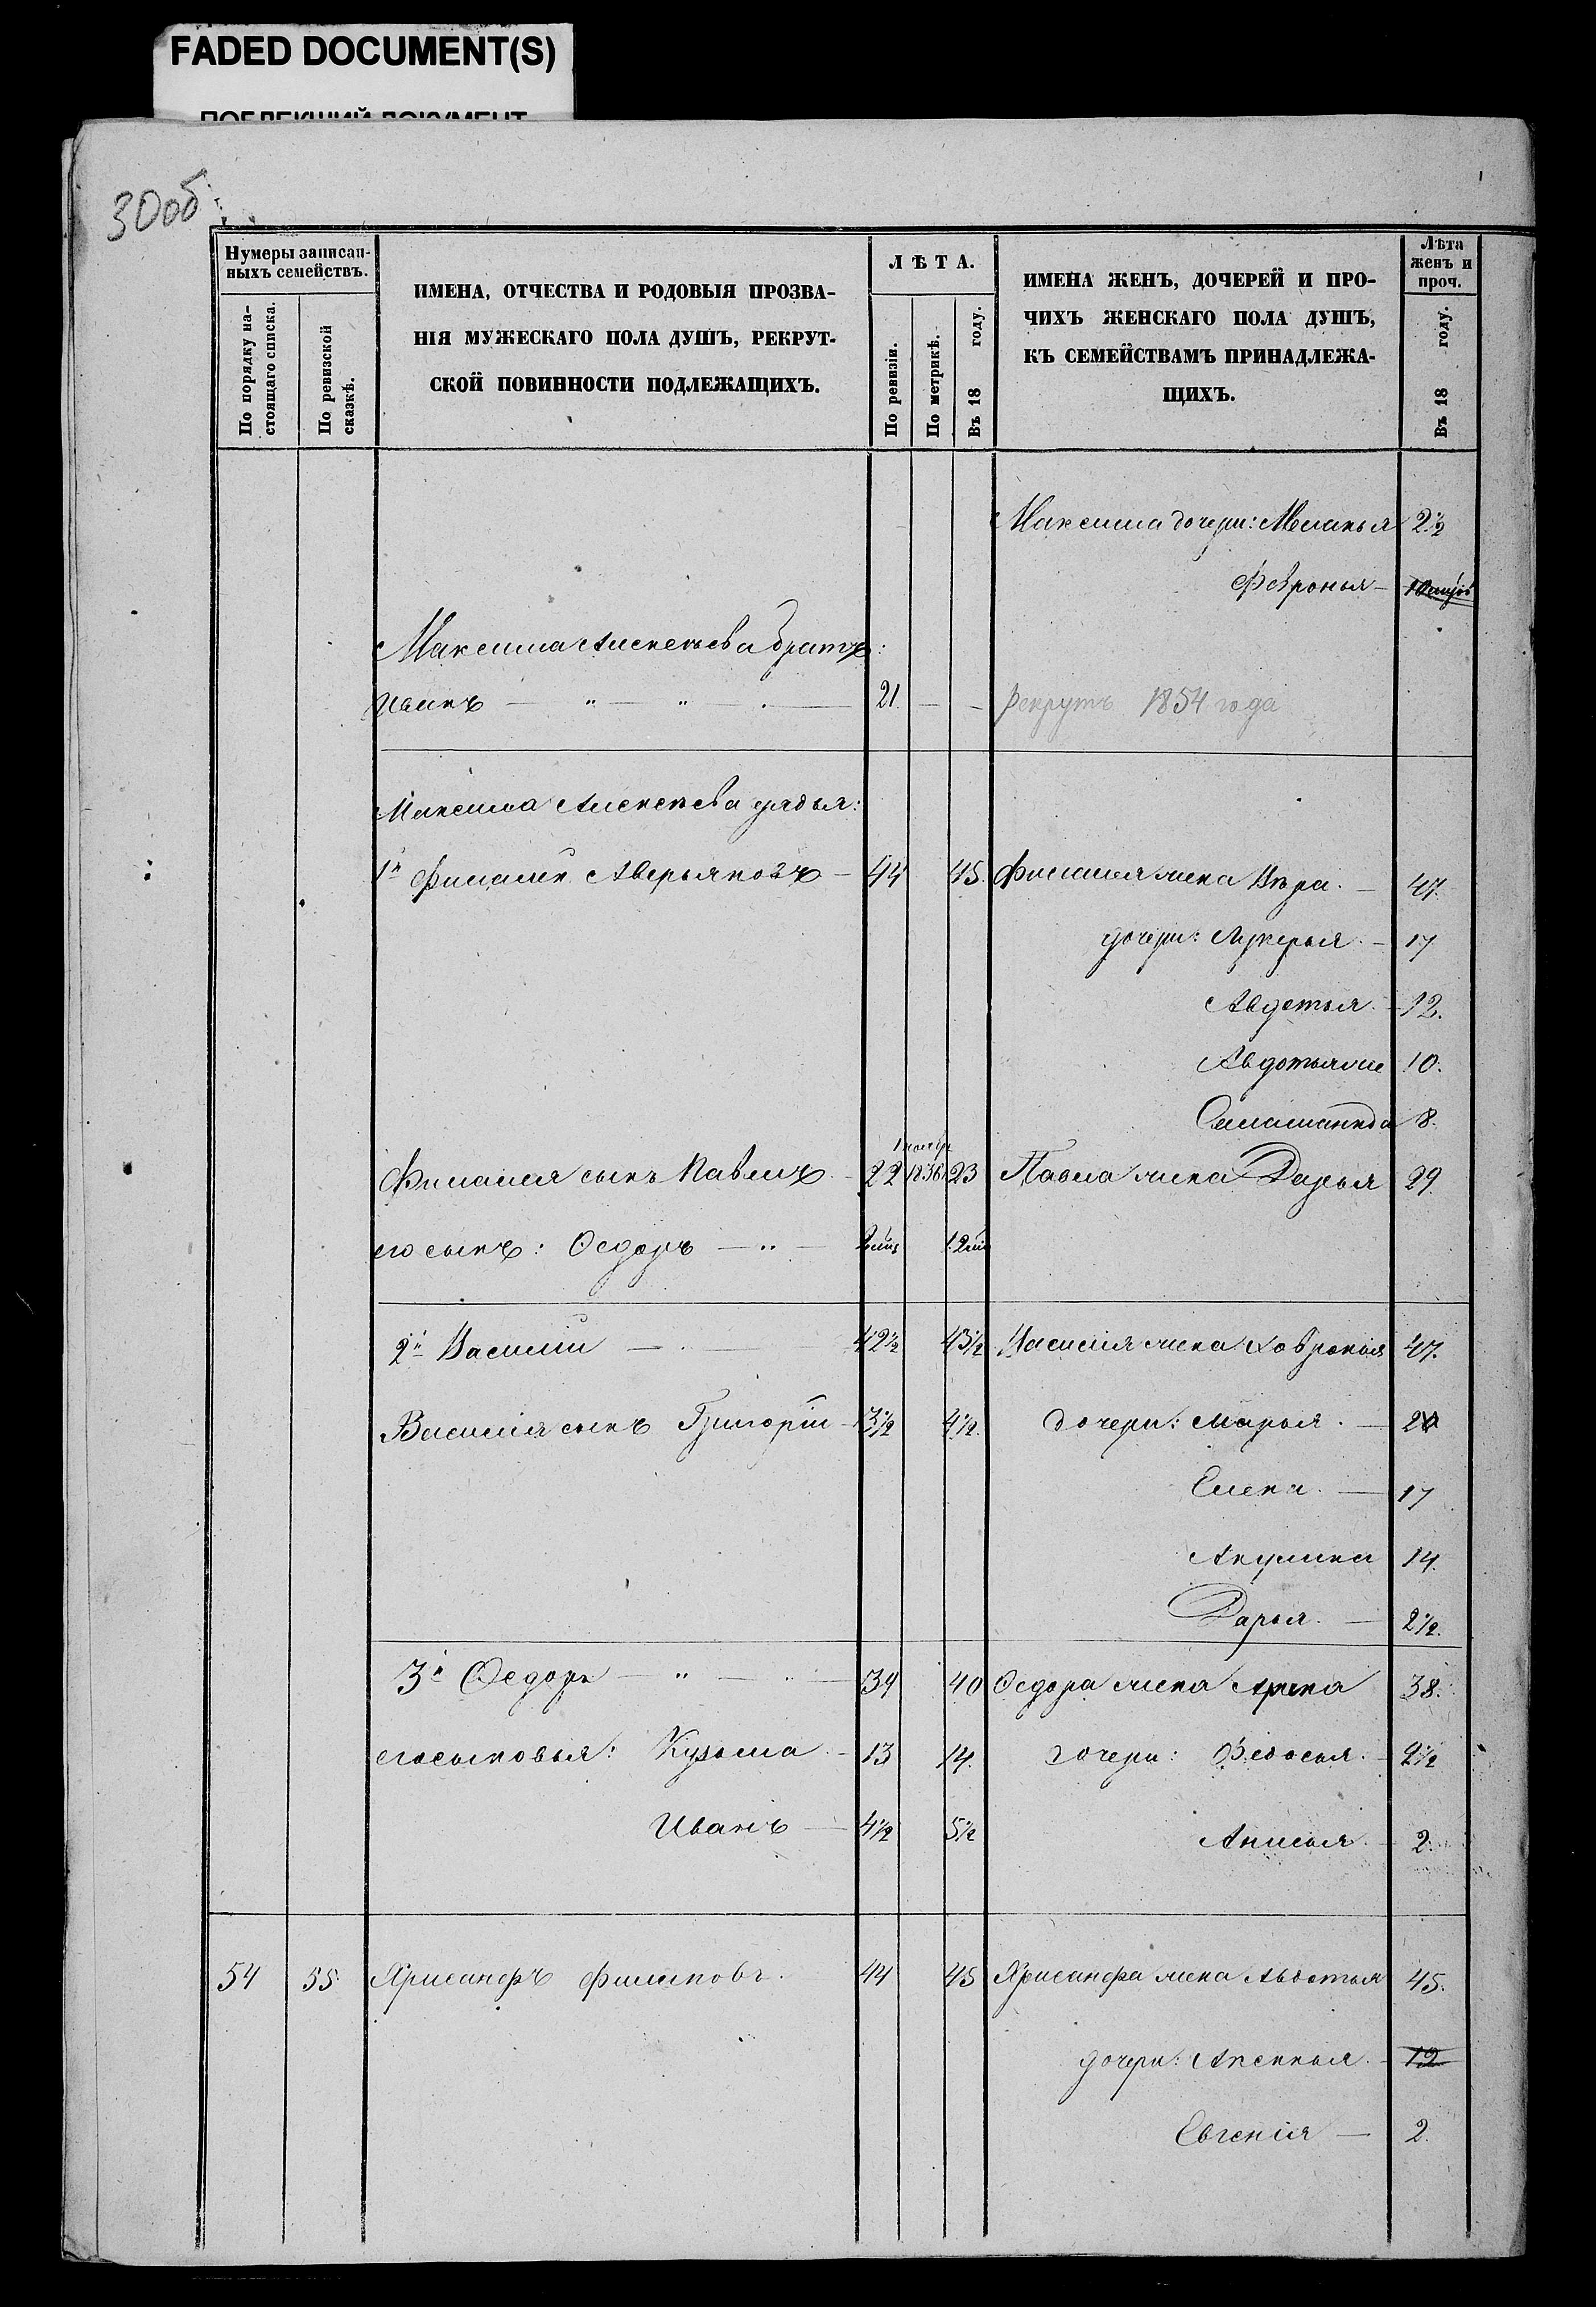 FADED DOCUMENT(S)
ПОБЛЕКШИЙ ДОКУМЕНТ
30об.
Нумеры записан-
ныхъ семействъ.
По порядку на-
стоящаго списка.
По ревизской
сказкѣ.
ИМЕНА, ОТЧЕСТВА И РОДОВЫЯ ПРОЗВА-
НІЯ МУЖЕСКАГО ПОЛА ДУШЪ, РЕКРУТ-
СКОЙ ПОВИННОСТИ ПОДЛЕЖАЩИХЪ.
ЛѢТА.
По ревизіи.
По метрикѣ.
Въ 18 году.
ИМЕНА ЖЕНЪ, ДОЧЕРЕЙ И ПРО-
ЧИХЪ ЖЕНСКАГО ПОЛА ДУШЪ,
КЪ СЕМЕЙСТВАМЪ ПРИНАДЛЕЖА-
ЩИХЪ.
Лѣта
женъ и
проч.
Въ 18 году.
Максима дочери: Меланья 2½
Февронья
Максима Алексѣева братъ:
Иванъ 21. Рекрутъ 1854 года
Максима Алексѣева дядья:
1й Филатей Аверьяновъ 44 45. жена Вѣра. 47.
дочери: Лукерья. 17
Авдотья. 12.
Авдотья же 10.
8.
сынъ Павелъ 22 1836 23 Павла жена Дарья 29.
его сынъ: Ѳедоръ
2й Василій 42½ 43½ Василія жена Ховронья 47.
Василія сынъ Григорій 3½ 4½. дочери: Марья. 20
Елена. 17
Акулина 14.
Дарья. 2½.
3й Ѳедоръ 39 40 Ѳедора жена Арина 38.
его сыновья: Кузьма 13 14. дочери: Ѳедосья. 2½
Иванъ 4½ 5½
Анисья 2.
54 55 Хрисанфъ Филиповъ. 44 45 Хрисанфа жена Авдотья 45.
дочери: Аксинья. 12
Евгенія 2.